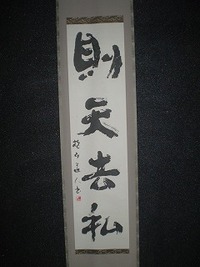 則天去私